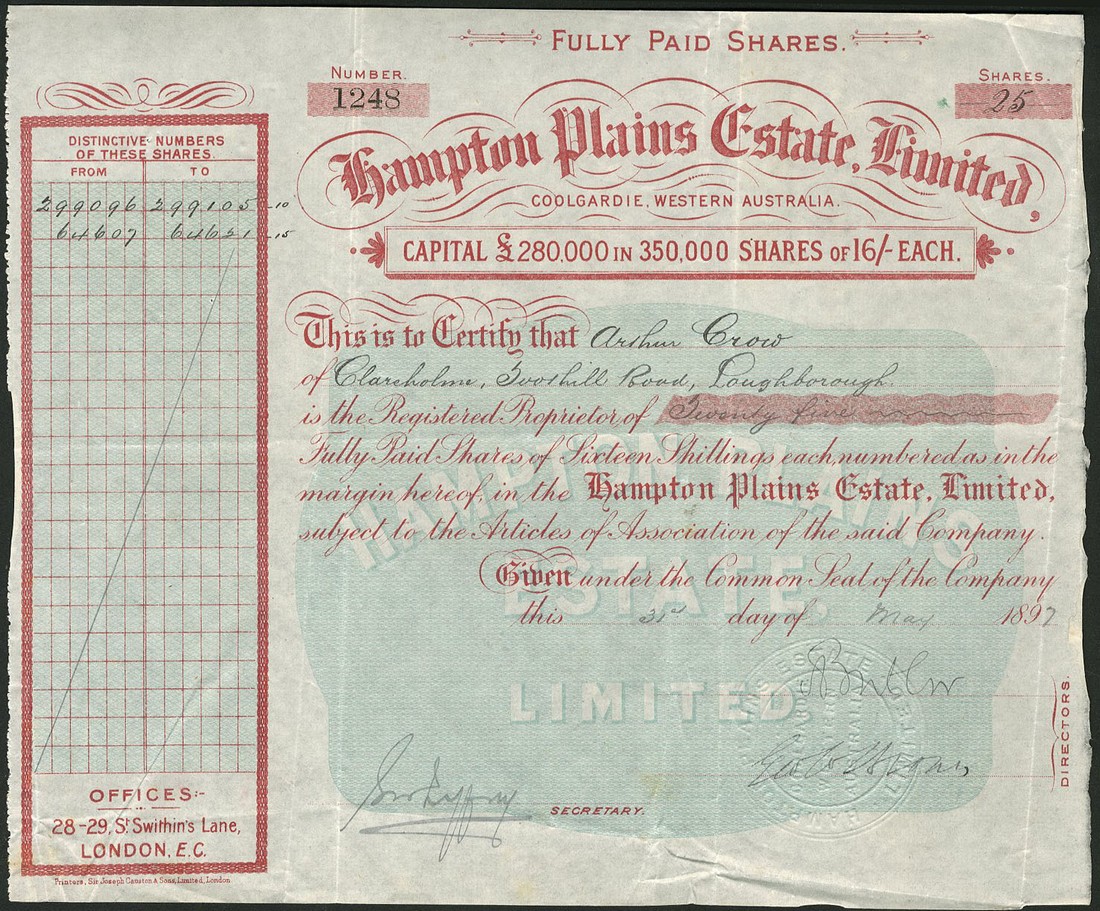 FULLY PAID SHARES.
NUMBER.
1248
SHARES.
25
Hampton Plains Estate, Limited,
COOLGARDIE, WESTERN AUSTRALIA.
CAPITAL £280,000 IN 350,000 SHARES OF 16/- EACH.
DISTINCTIVE NUMBERS
OF THESE SHARES.
FROM TO
299096 299105 -10
64607 64621 -15
This is to Certify that Arthur Crow
of Clareholme, Road, Loughborough.
is the Registered Proprietor of Twenty five
Fully Paid Shares of Sixteen Shillings each, numbered as in the
margin hereof, in the Hampton Plains Estate, Limited,
subject to the Articles of Association of the said Company.
Given under the Common Seal of the Company
this 31st day of May 1897
HAMPTON PLAINS
ESTATE,
LIMITED.
DIRECTORS.
SECRETARY.
OFFICES:-
28-29, St. Swithin's Lane,
LONDON, E.C.
Printers, Sir Joseph Causton & Sons, Limited, London